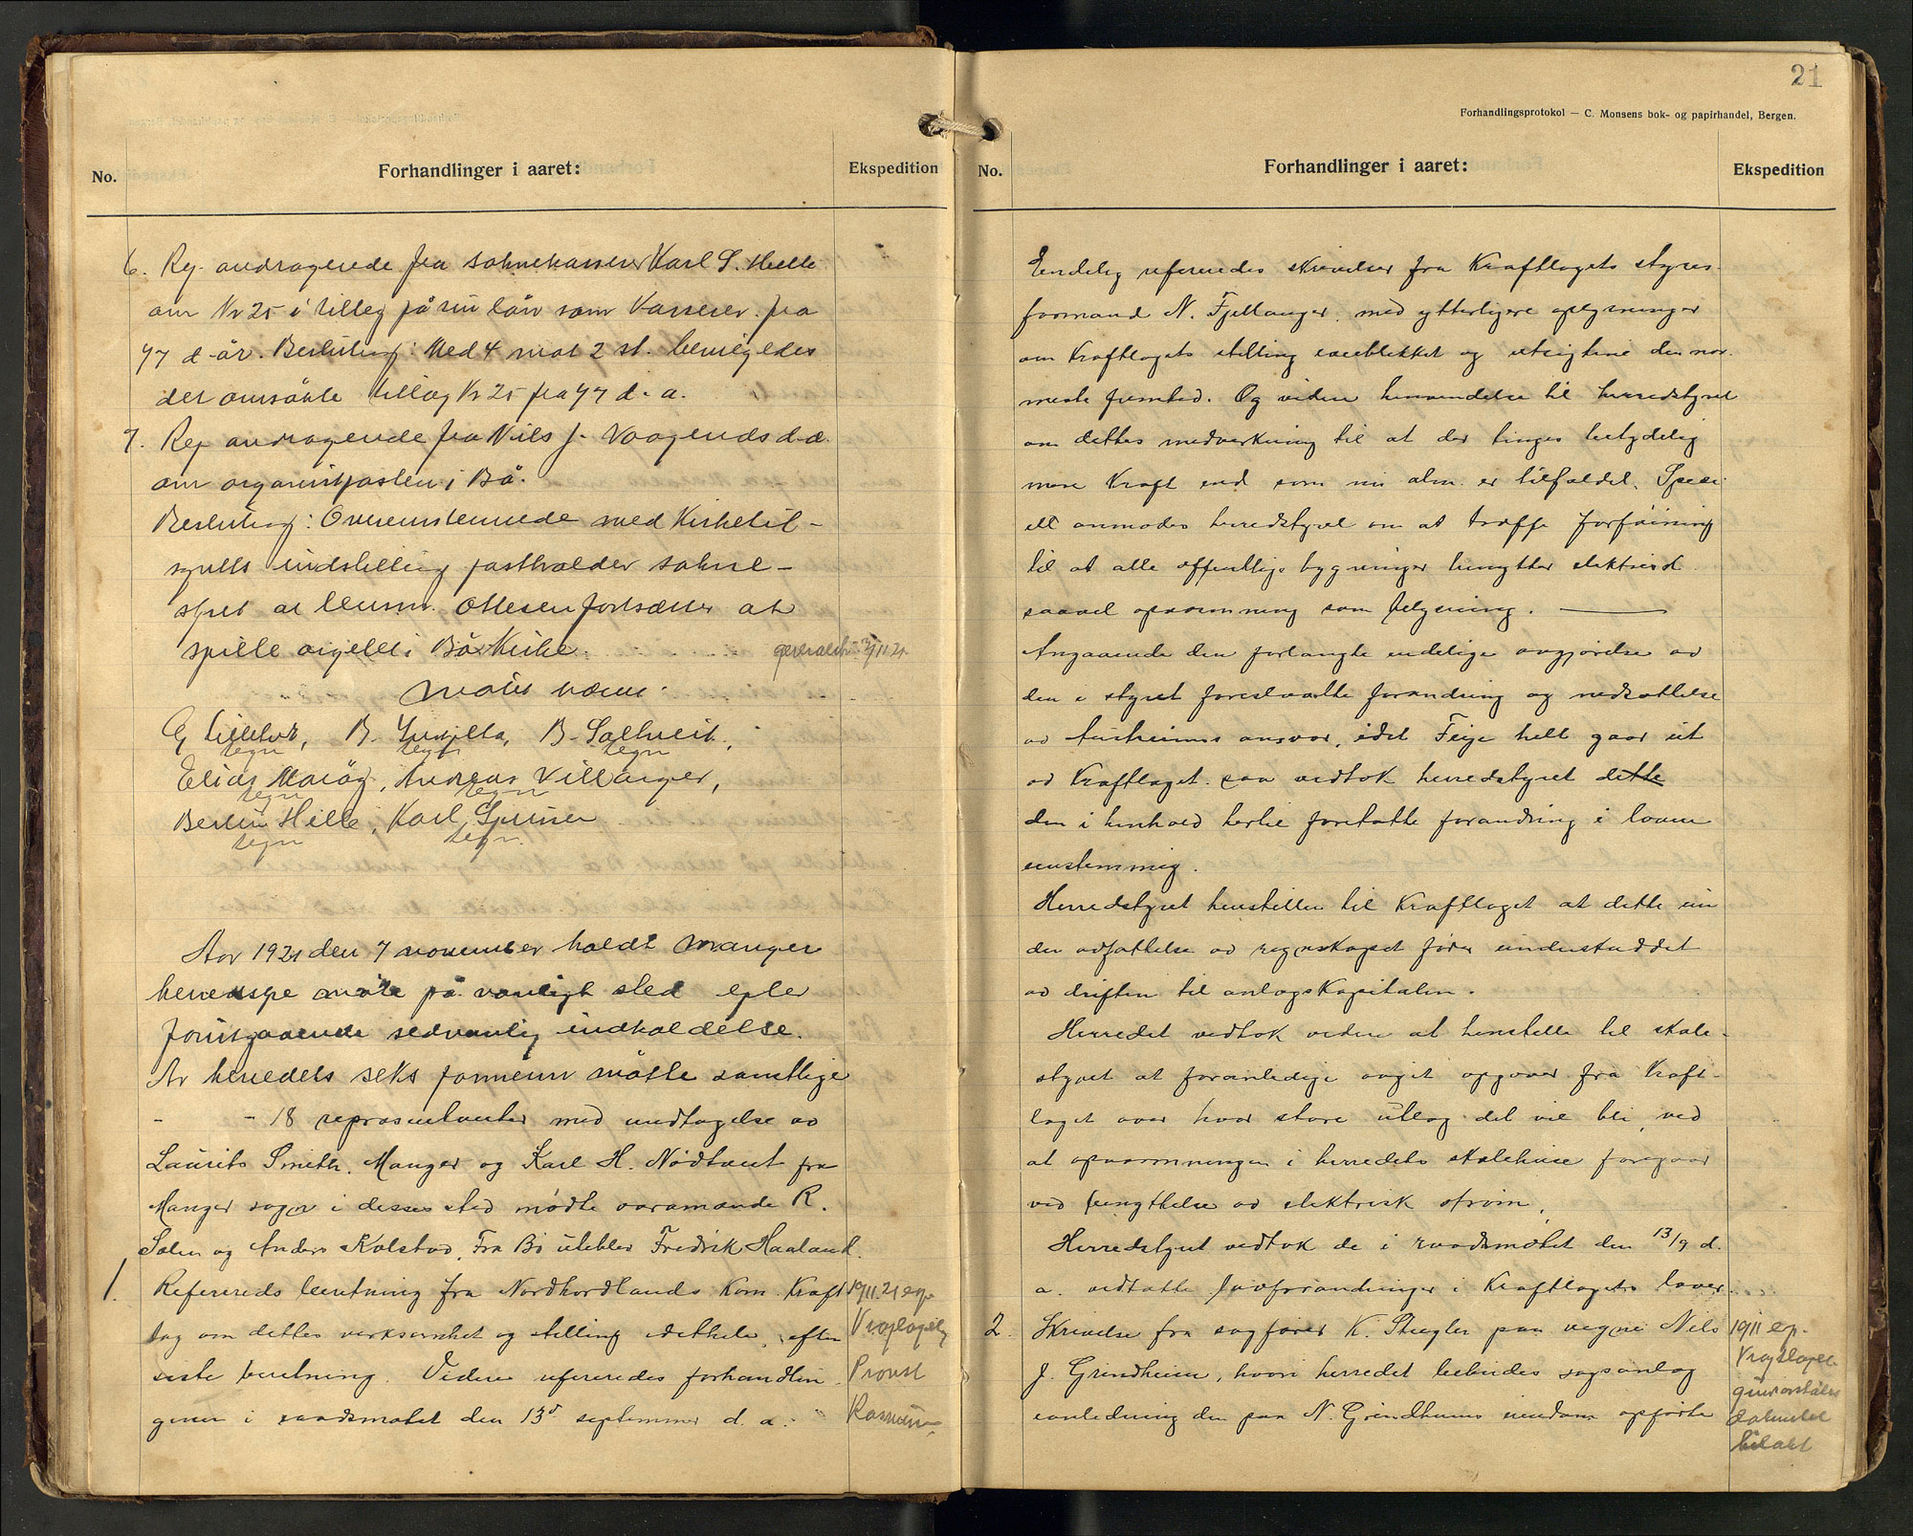 No.
Forhandlinger i aaret:
Ekspedition
6. Ref. andragende fra soknekasserer Karl S. Helle
om Kr 25 i tilleg på sin lön som kasserer fra
1/7 d. år. Beslutning: Med 4 mot 2 st. bevilgedes
det omsökte tillæg Kr 25 fra 1/7 d. a.
7. Ref andragende fra Nils J. Vaagenes d.æ.
om organistposten i Bö.
Beslutning: Overenstemmede med Kirketil-
syets indstilling fastholder sokne-
styret at Ottesen fortsætter at
spille orgelet i Bö Kirke.
Mötet hævet.
B. B. Sætveit,
tegn tegn tegn
Elias Marøy, Andreas Villanger,
tegn tegn
Bertin Hille, Karl
tegn tegn.
Aar 1921 den 7 november holdt Manger
herredstyre möte på vanligt sted efter
forutgaaende sedvanlig indkaldelse.
Av herredets seks formenn mötte samtlige
- - 18 representanter med undtagelse av
Laurits Smith, Manger og Karl H. Nödtveit fra
Manger sogn i desses sted mødte varamænde R.
Solen og Anders Kolstad. Fra Bö uteblev Fredrik Haaland.
1. Referereds beretning fra Nordhordlands Kom. Kraft
lag om dettes verksomhet og stilling efter
siste beretning. Videre refereredes forhandlin
gerne i raadsmøtet den 13de september d. a.
19/11.21
Rasmus
21
Forhandlingsprotokol — C. Monsens bok- og papirhandel, Bergen.
No.
Forhandlinger i aaret:
Ekspedition
Endelig refereredes skrivelser fra Kraftlagets styres-
formand N. Fjellanger, med ytterligere oplysninger
om Kraftlagets stilling og utsigtene den nær-
meste fremtid. Og videre henvendelse til herredstyret
om dettes medverkning til at der tinges betydelig
mere Kraft end som nu alm. er tilfældet. Speci-
elt anmodes herredstyret om at træffe forföining
til at alle offentlige bygninger benytter elektrisk
saavel opvarmning som belysning.
Angaaende den forlangte endelige avgjörelse av
den i styret foreslaatte forandring og nedsættelse
av Austrheims ansvar, idet Feje helt gaar ut
av Kraftlaget saa vedtok herredstyret dette
den i henhold hertil foretatte forandring i loven
enstemmig.
Herredstyret henstiller til Kraftlaget at dette un
der avfattelse av regnskapet förer underskuddet
av driften til anlægskapitalen.
Herredet vedtok videre at henstille til skole-
styret at foranledige avgit opgaver fra Kraft-
laget over hvor store utlæg det vil bli, ved
at opvarmningen i herredets skolehuse foregaar
ved benyttelse av elektrisk ström.
Herredstyret vedtok de i raadsmøtet den 13/9 d.
a. vedtatte lovforandringer i Kraftlagets lover.
2. Skrivelse fra sagförer K. Stegler paa vegne Nils
J. Grindheim, hvori herredet bebudes sagsanlæg
i anledning den paa N. Grindheims eiendom opförte
19/11 exp.
bilagt